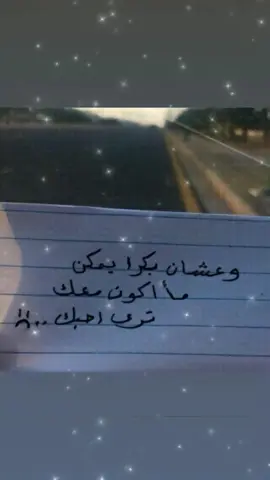 وعشان بكرا يمكن
مأ اكون معك
ترى احبك .. !!